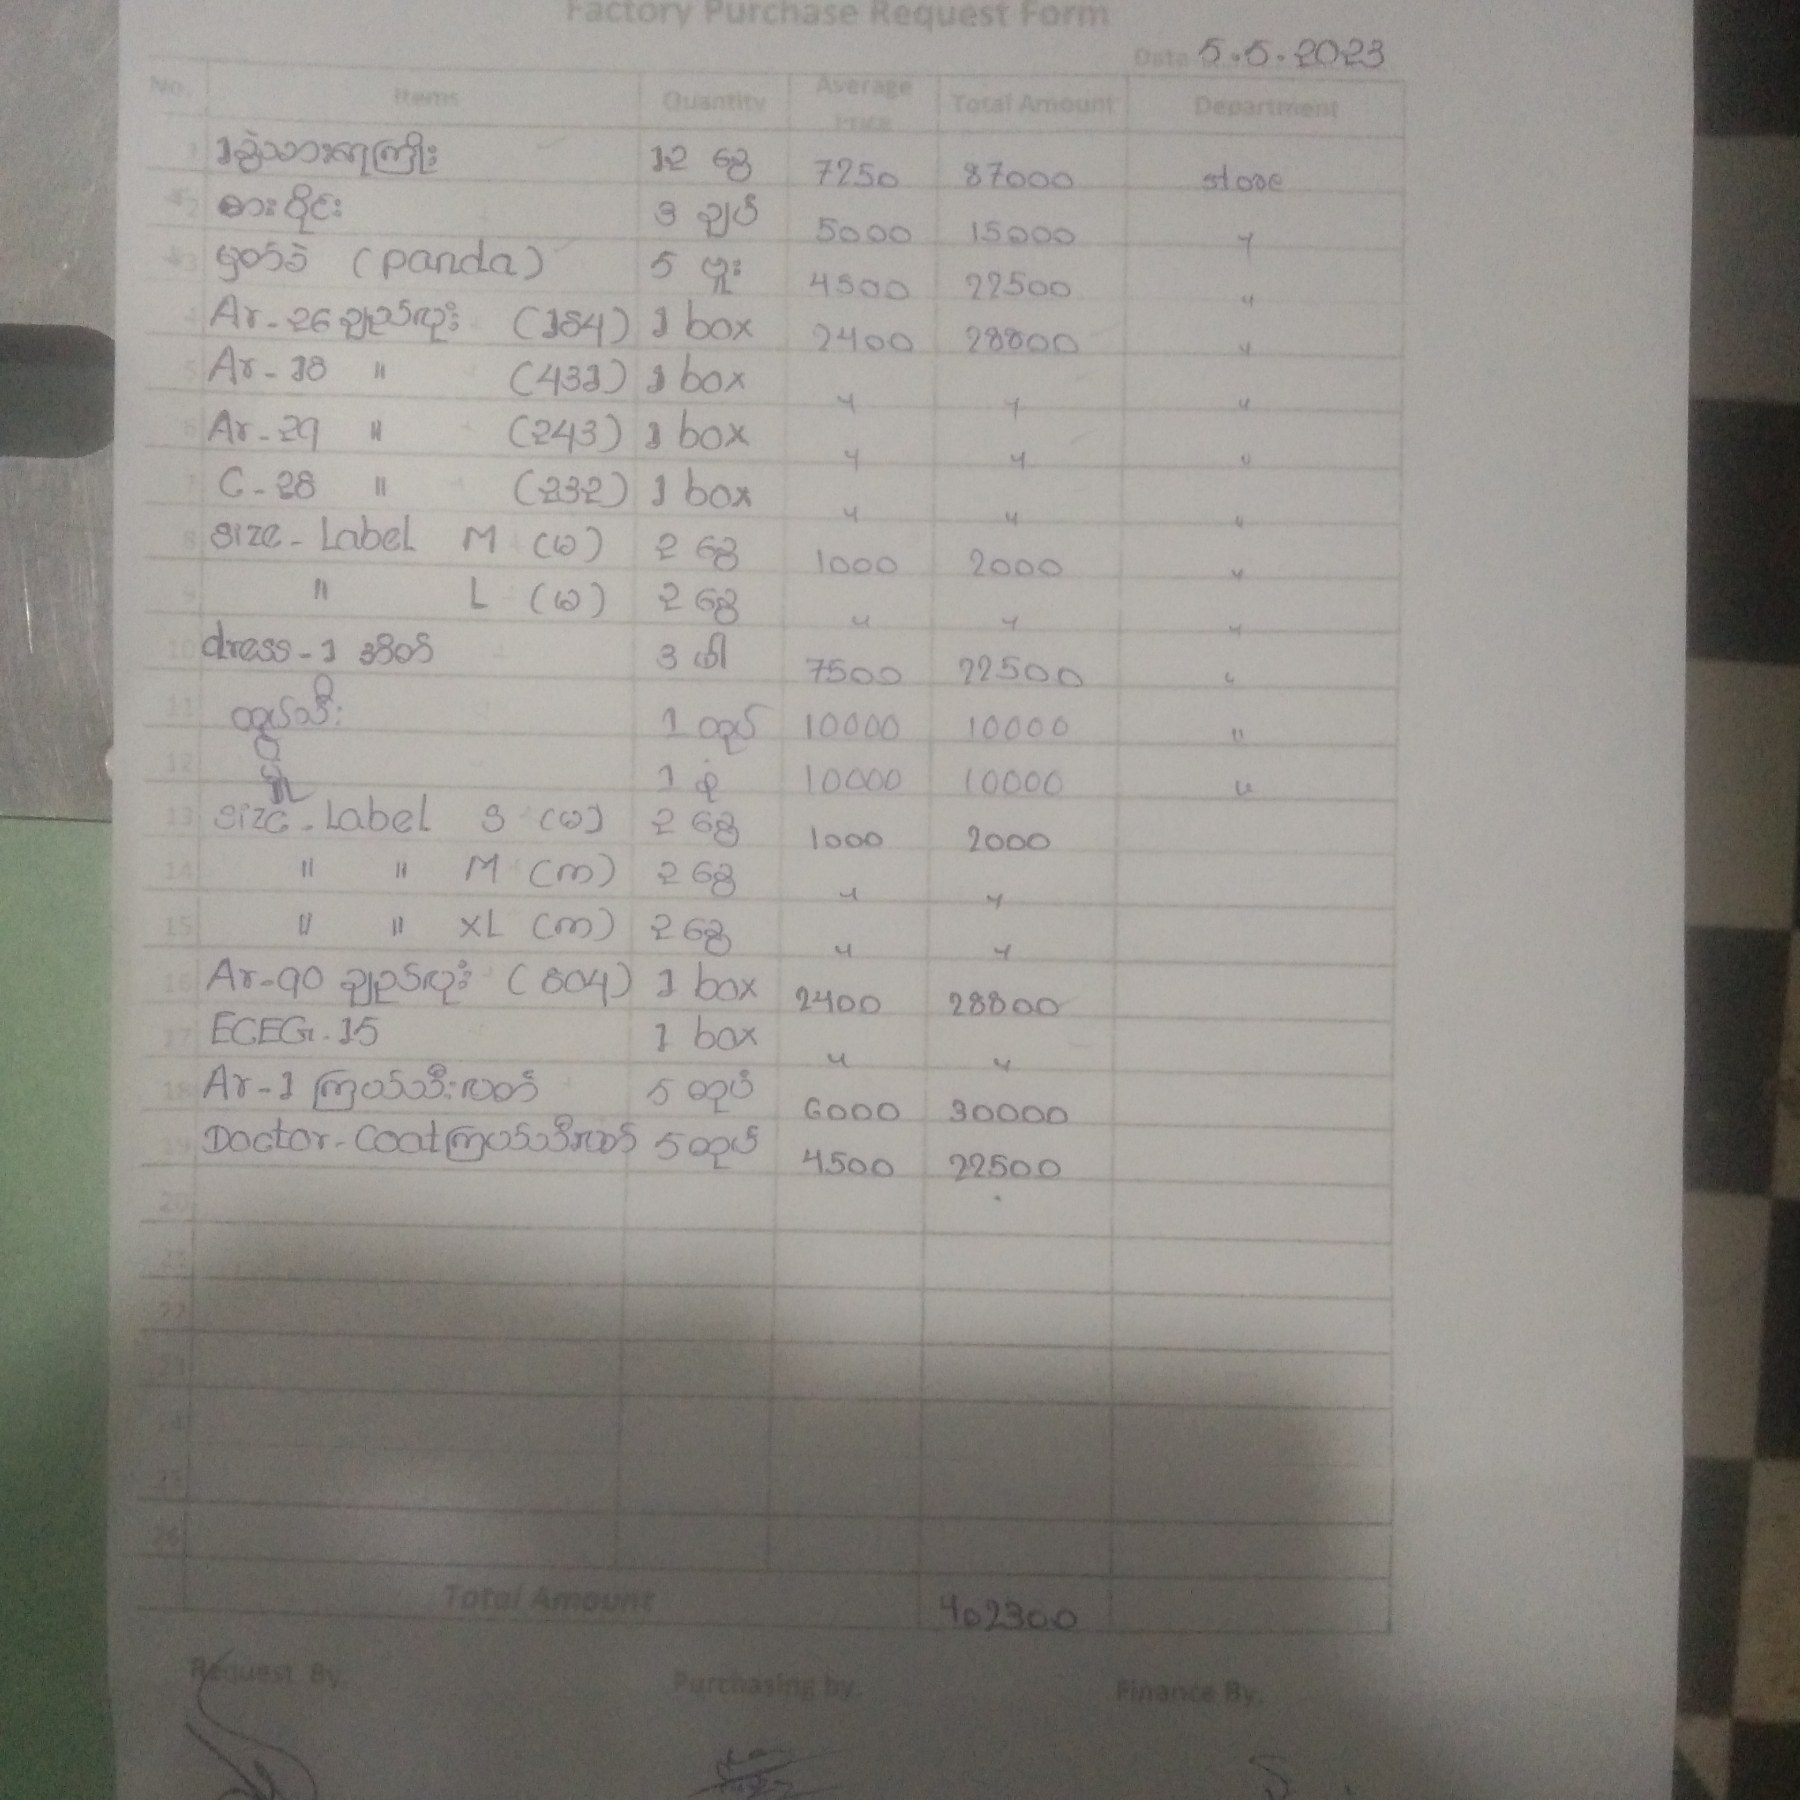 Factory Purchase Request Form
Date 5.5.2023
No. Items Quantity Average Price Total Amount Department
1 12 ခွေ 7250 87000 store
2 စားပိုင်း 3 ချပ် 5000 15000 "
3 ရွှတ်ခဲ (panda) 5 ဗူး 4500 22500 "
4 Ar-26 ချည်လုံး (184) 1 box 2400 28800 "
5 Ar-18 " (431) 1 box " " "
6 Ar-29 " (243) 1 box " " "
7 C-28 " (232) 1 box " " "
8 size-Label M (မ) 2 ခွေ 1000 2000 "
9 " L (မ) 2 ခွေ " " "
10 dress-1 အိတ် 3 ဖါ 7500 22500 "
11 တွယ်သီး 1 ထုပ် 10000 10000 "
12 1 စုံ 10000 10000 "
13 size-Label S (မ) 2 ခွေ 1000 2000
14 " " M (က) 2 ခွေ " "
15 " " XL (က) 2 ခွေ " "
16 Ar-90 ချည်လုံး (804) 1 box 2400 28800
17 ECEG-15 1 box " "
18 Ar-1 ကြယ်သီးလတ် 5 ထုပ် 6000 30000
19 Doctor-Coat ကြယ်သီးလတ် 5 ထုပ် 4500 22500
20
21
22
23
24
25
26
Total Amount 402300
Request By. Purchasing by. Finance By.